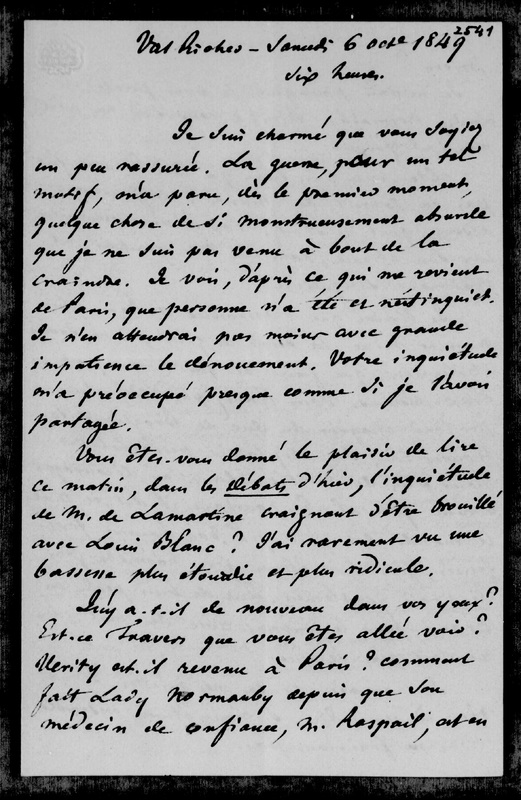 2541
Val Richer - Samedi 6 octe 1849
Six heures.
Je suis charmé que vous soyiez
un peu rassurée. La guerre, pour un tel
motif, m'a paru, dès le premier moment,
quelque chose de si monstrueusement absurde
que je ne suis pas venu à bout de la
craindre. Je vois, d'après ce qui me revient
de Paris, que personne n'a été et n'est inquiet.
Je n'en attendrai pas moins avec grande
impatience le dénouement. Votre inquiétude
m'a préoccupé presque comme si je l'avois
partagée.
Vous êtes-vous donné le plaisir de lire
ce matin, dans les débats d'hier, l'inquiétude
de M. de Lamartine craignant d'être brouillé
avec Louis Blanc ? J'ai rarement vu une
bassesse plus étourdie et plus ridicule.
Qu'y a-t-il de nouveau dans vos yeux ?
Est-ce Travers que vous êtes allée voir ?
Verity est-il revenu à Paris ? comment
fait Lady Normanby depuis que son
médecin de confiance, M. Raspail, est en